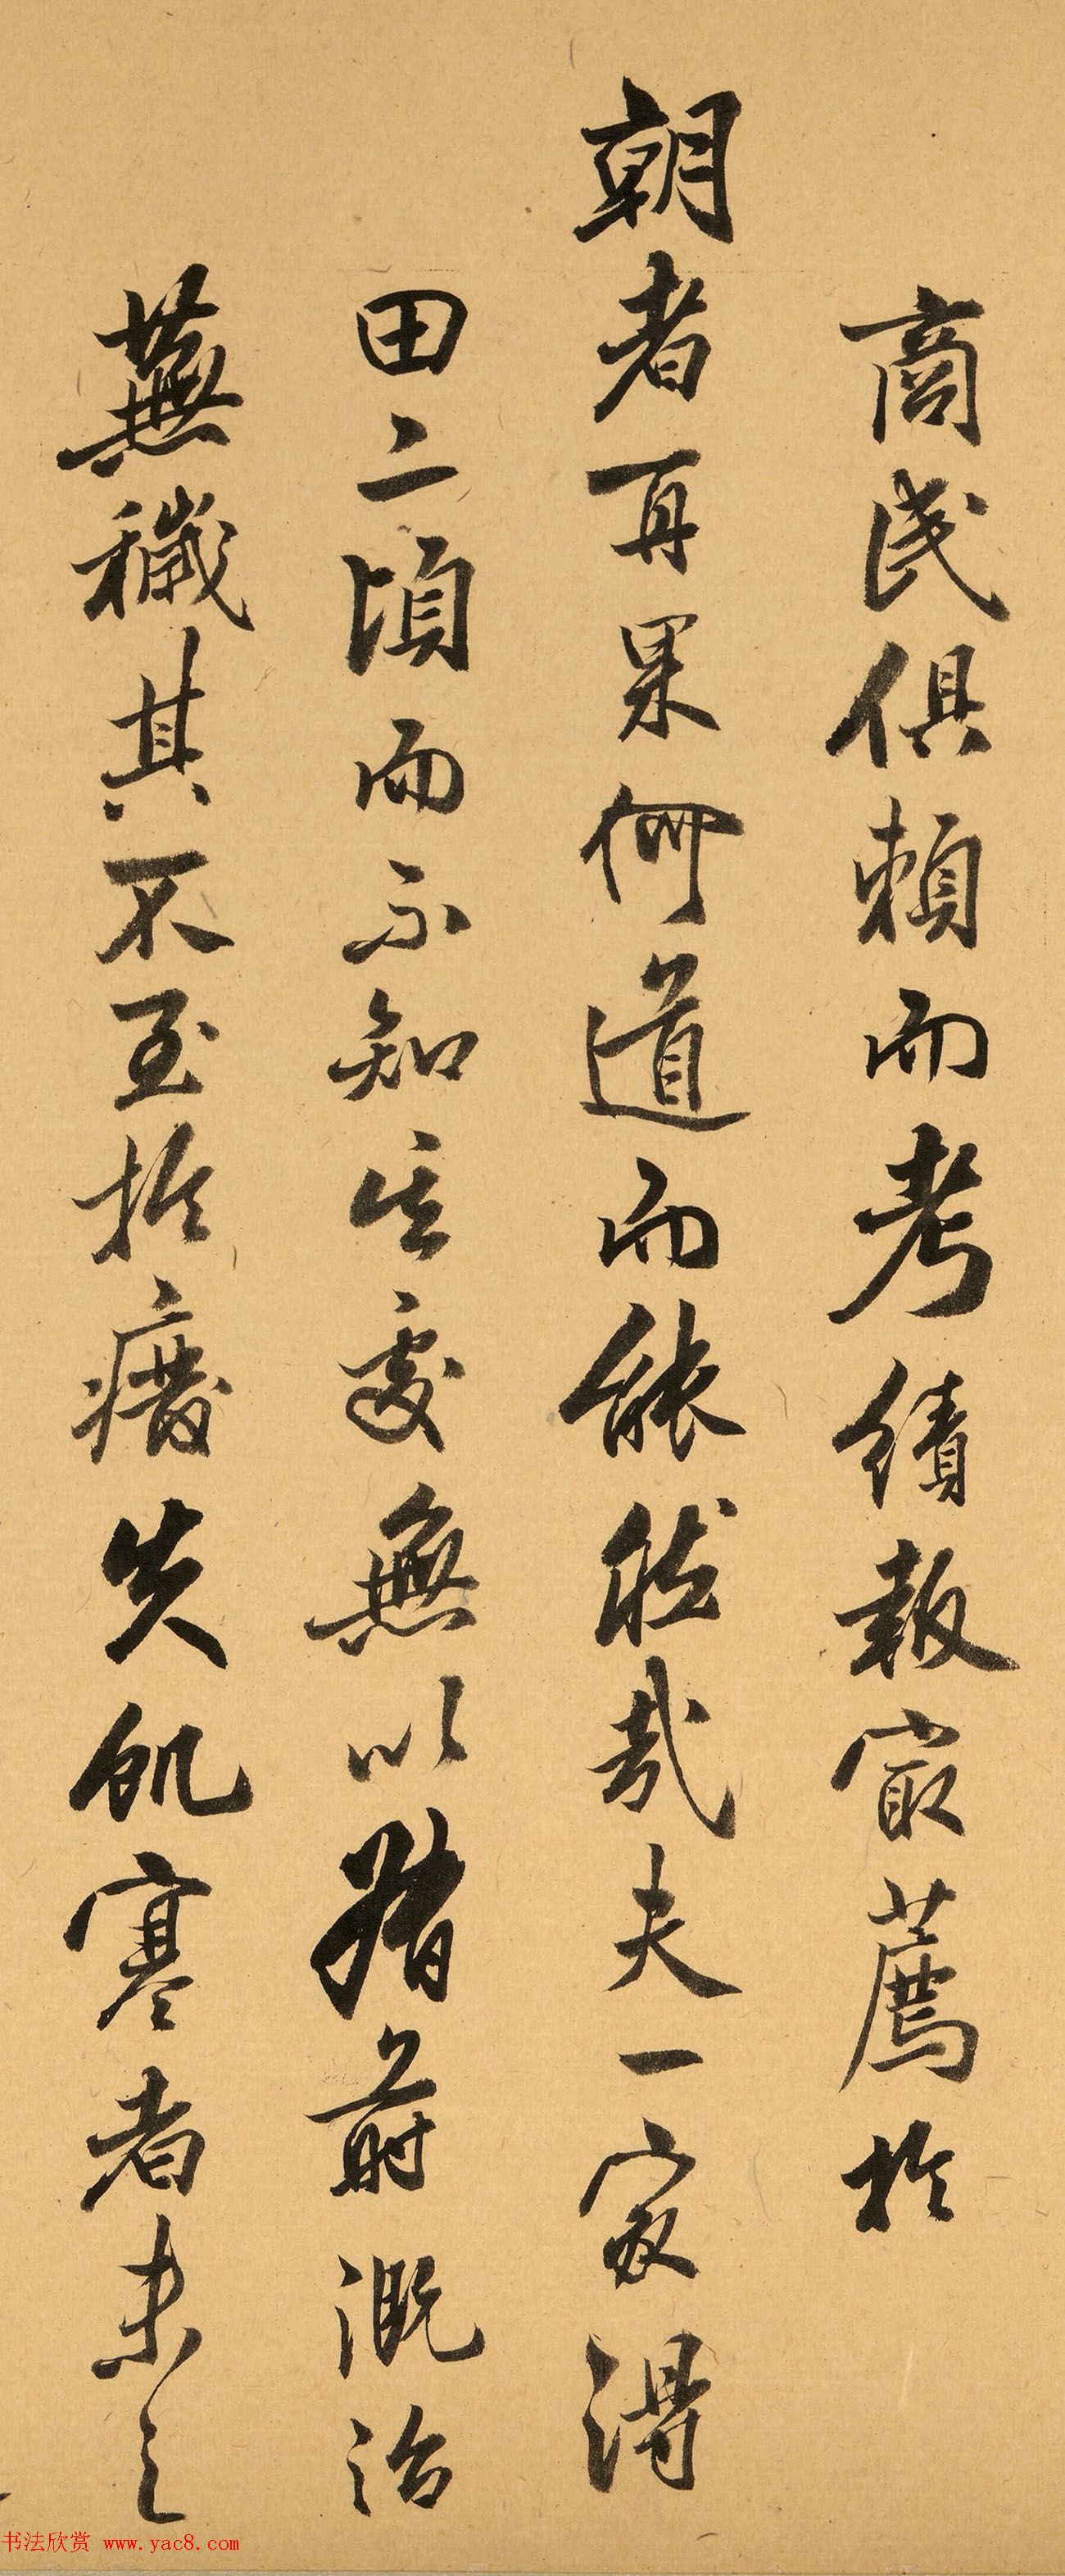 商民俱賴而考績報最薦於
朝者再果何道而能然哉夫一家得
田二頃而不知其處無以蓄前溉治
蕪穢其不至於癈失飢寒者未之
书法欣赏 www.yac8.com